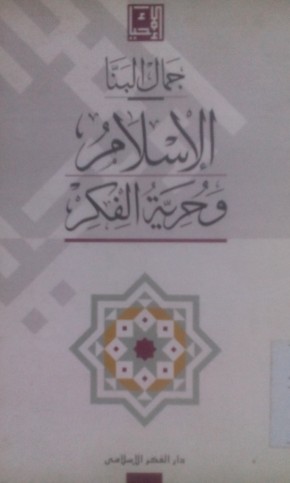 جمال البنا
الإسلام
وحرية الفكر
دار الفكر الإسلامى